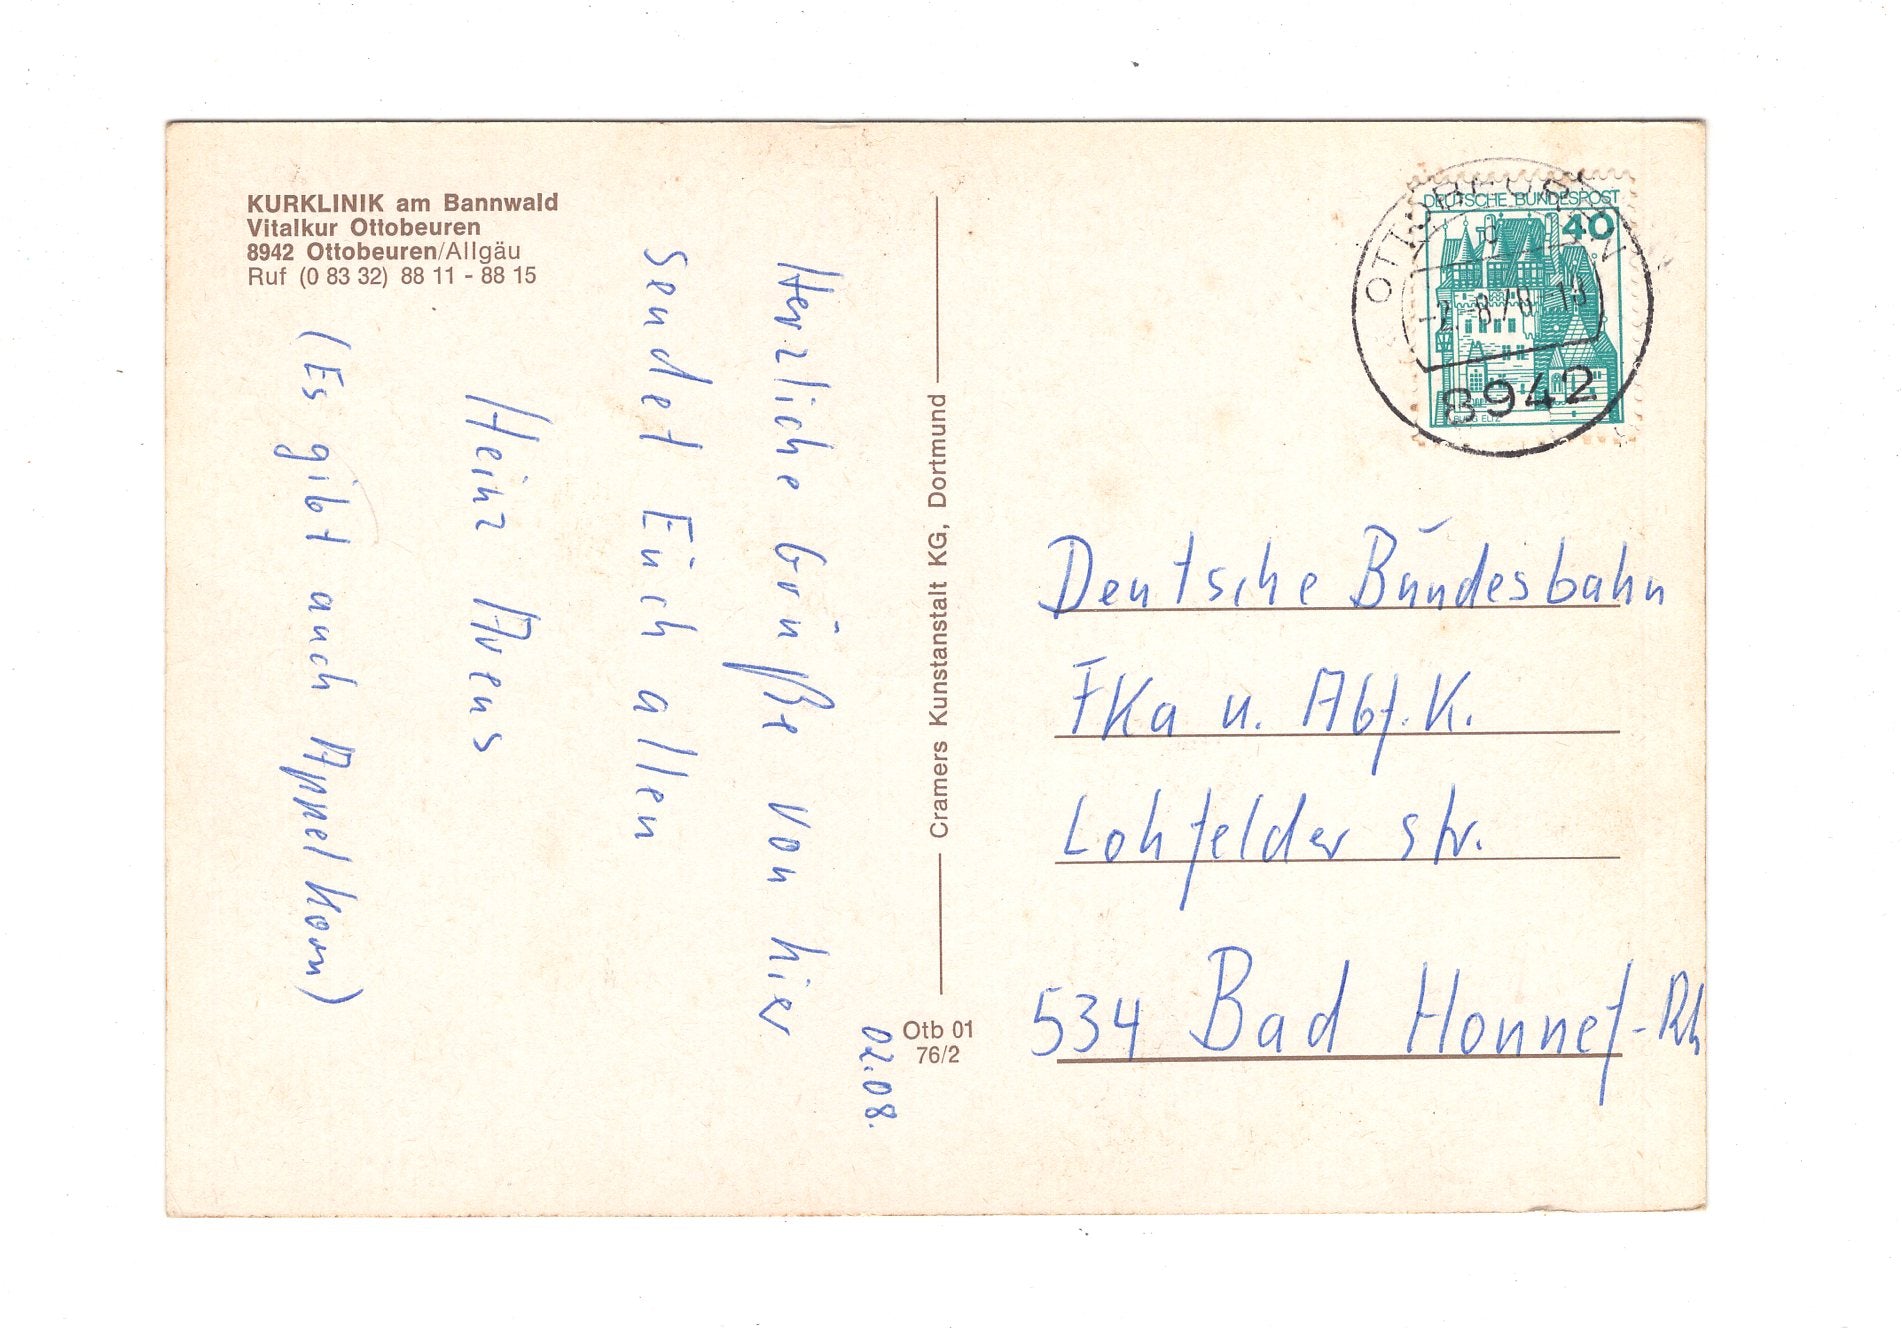 KURKLINIK am Bannwald
Vitalkur Ottobeuren
8942 Ottobeuren/Allgäu
Ruf (0 83 32) 88 11 - 88 15
02.08.
Herzliche Grüße von hier
sendet Euch allen
Heinz Arens
(Es gibt auch Appelkorn)
Cramers Kunstanstalt KG, Dortmund
Otb 01
76/2
DEUTSCHE BUNDESPOST
40
BURG ELTZ
OTTOBEUREN
8942
Deutsche Bundesbahn
FKa u. Abf. K.
Lohfelder Str.
534 Bad Honnef-Rh